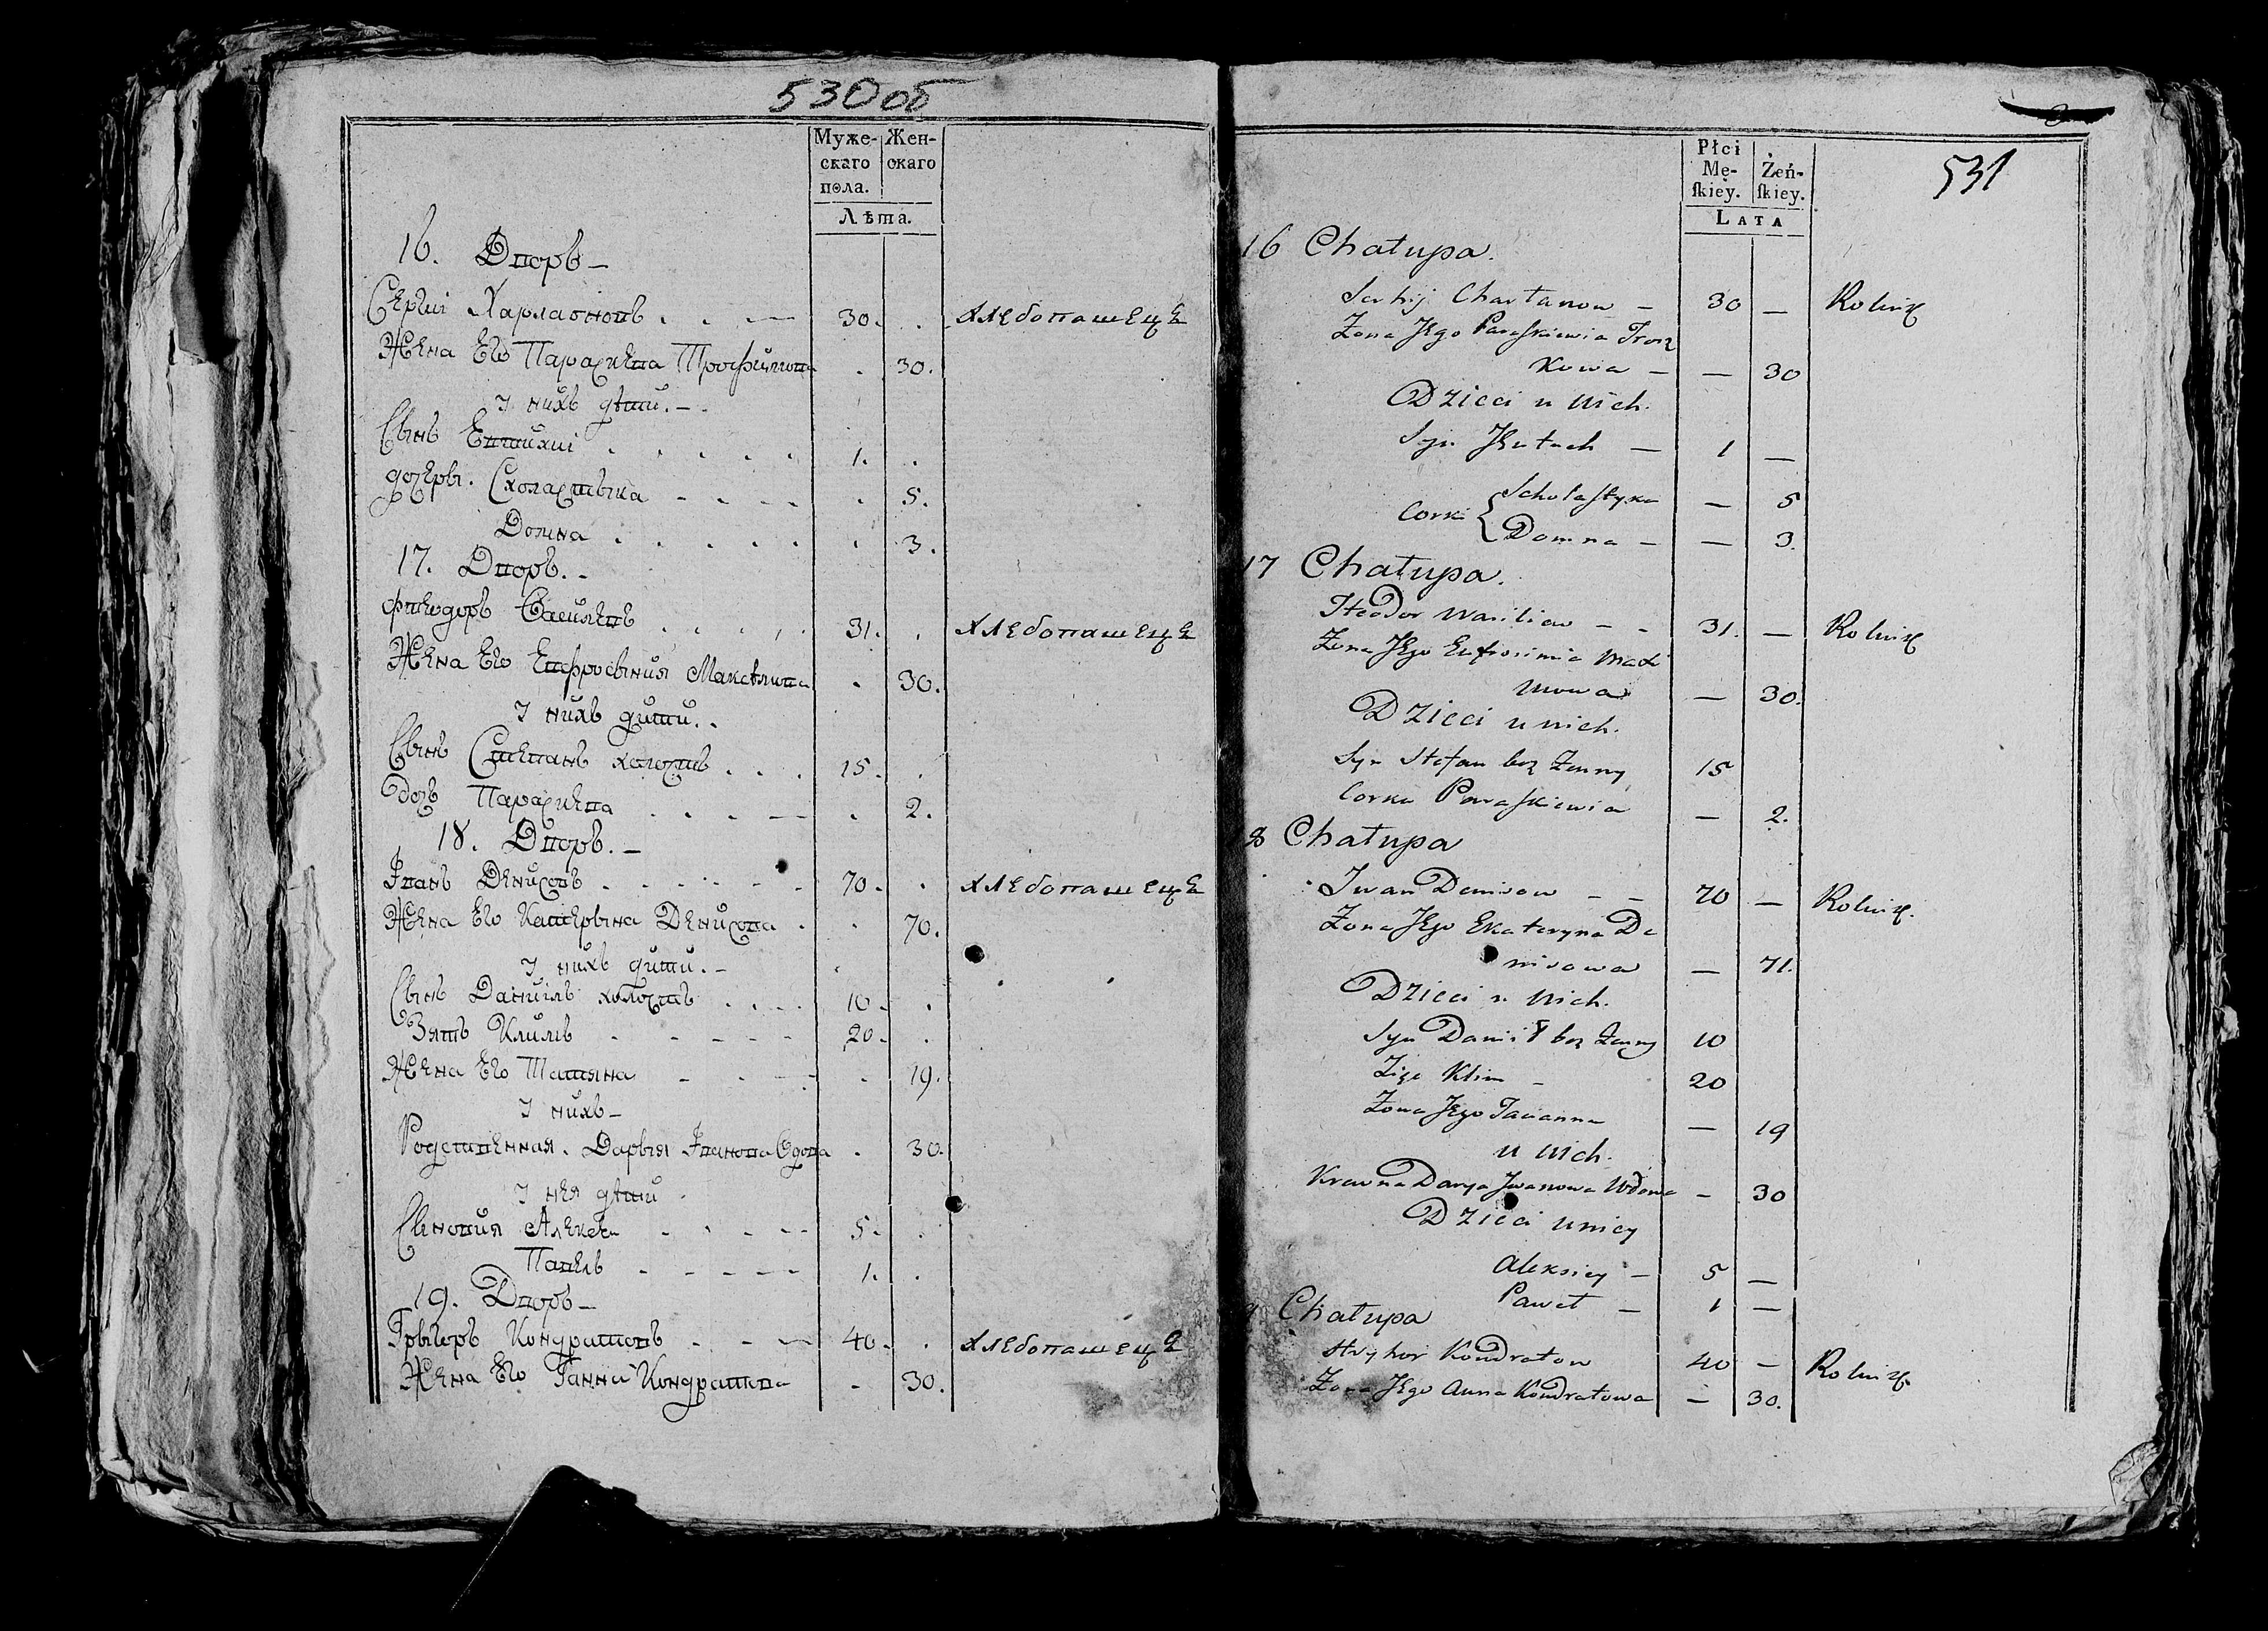 530 об
Муже-
скаго
пола.
Жен-
скаго
Лѣта.
16. Дворъ –
Сергій Харлановъ . . — 30. . хлебопашецъ
Жена Его Параскева Трофимова . 30.
У нихъ дѣти. –
Сынъ Евтихій . . . . . 1. .
дочерь. Схоластыка - - - - . 5.
Домна . . . . . . 3.
17. Дворъ. -
Фтеодоръ Василевъ . . . . 31. . хлебопашецъ
Жена Его Ефросыния Максимова . 30.
У нихъ дити. .
Сынъ Степанъ холостъ . . . 15. .
дочь Параскева . . . — . 2.
18. Дворъ. –
Іванъ Денисовъ . . . . . . 70. . хлебопашецъ
Жена Его Катерына Денисова . . 70.
У нихъ дити. –
Сынъ Даниілъ холостъ . . . . 10. .
Зять Климъ - - - - - 20. .
Жена Его Татяна - - - - . 19.
У нихъ –
Родственная. Дарыя Іванова вдова . 30.
У нея дѣти
Сыновия Алексѣй - - - - 5. .
Павелъ - - - - - 1. .
19. Дворъ –
Грыгоръ Кондратовъ - - — 40. . хлебопашецъ
Жена Его Ганна Кондратова - 30.
Płci
Mę-
ſkiey.
Żeń-
ſkiey.
531
LATA
16 Chałupa.
Serhij Charłanow – 30 — Rolnik
Żona Jego Paraſkiewia Trosz
kowa – — 30
Dzieci u nich.
Syn – 1 —
Corki { Scholaſtyka — 5
Domna – — 3.
17 Chałupa.
Hteodor Wasiliew – - 31. — Rolnik
Żona Jego Eufrosinia Maxi
mowa — 30.
Dzieci u nich.
Syn Stefan bez Żenny 15
Corka Paraſkiewia — 2.
8 Chałupa
Iwan Denisow – – 70 — Rolnik.
Żona Jego Ekateryna De
nisowa — 71.
Dzieci u nich.
Syn Danił bez Żenny 10
Zięć Klim – 20
Żona Jego Tacianna — 19
u nich.
Krewna Darya Iwanowa Wdowa – 30
Dzieci u niey
Alexiey – 5 —
Paweł – 1 —
9 Chałupa
Hryhor Kondratow 40 — Rolnik
Żona Jego Anna Kondratowa — 30.